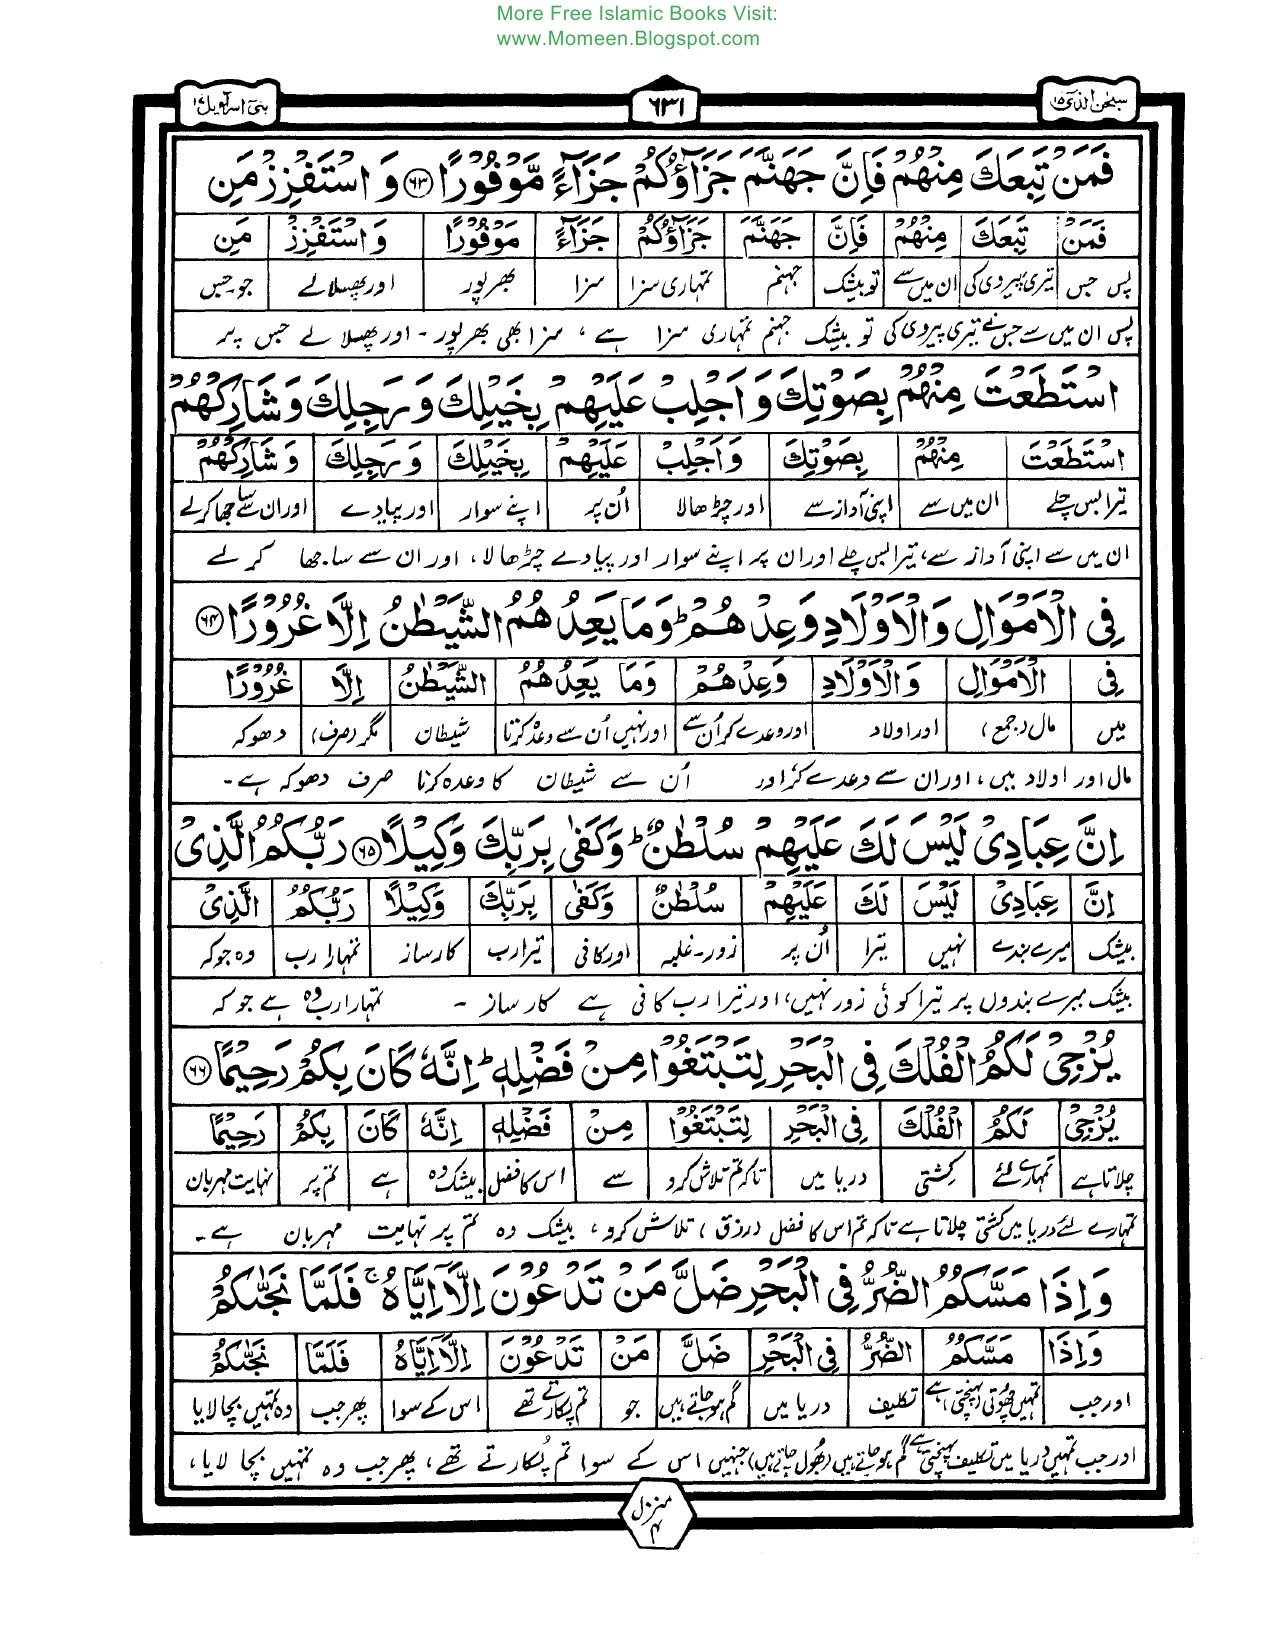 More Free Islamic Books Visit:
www.Momeen.Blogspot.com
سبحٰن الذی ۱۵ ۶۳۱ بنی اسرآءیل ۱۷
فَمَنْ تَبِعَكَ مِنْهُمْ فَاِنَّ جَهَنَّمَ جَزَآؤُكُمْ جَزَآءً مَّوْفُوْرًا ﴿۶۳﴾ وَ اسْتَفْزِزْ مَنِ
فَمَنْ تَبِعَكَ مِنْهُمْ فَاِنَّ جَهَنَّمَ جَزَآؤُكُمْ جَزَآءً مَّوْفُوْرًا وَ اسْتَفْزِزْ مَنِ
پس جس تیری پیروی کی ان میں سے تو بیشک جہنم تمہاری سزا سزا بھرپور اور پھسلا لے جو۔جس
پس ان میں سے جس نے تیری پیروی کی تو بیشک جہنم تمہاری سزا ہے ، سزا بھی بھرپور - اور پھسلا لے جس پر
اسْتَطَعْتَ مِنْهُمْ بِصَوْتِكَ وَ اَجْلِبْ عَلَيْهِمْ بِخَيْلِكَ وَ رَجِلِكَ وَ شَارِكْهُمْ
اسْتَطَعْتَ مِنْهُمْ بِصَوْتِكَ وَ اَجْلِبْ عَلَيْهِمْ بِخَيْلِكَ وَ رَجِلِكَ وَ شَارِكْهُمْ
تیرا بس چلے ان میں سے اپنی آواز سے اور چڑھا لا اُن پر اپنے سوار اور پیادے اور ان سے ساجھا کر لے
ان میں سے اپنی آواز سے، تیرا بس چلے اور ان پر اپنے سوار اور پیادے چڑھا لا، اور ان سے ساجھا کر لے
فِی الْاَمْوَالِ وَالْاَوْلَادِ وَعِدْهُمْ ؕ وَمَا يَعِدُهُمُ الشَّيْطٰنُ اِلَّا غُرُوْرًا ﴿۶۴﴾
فِی الْاَمْوَالِ وَالْاَوْلَادِ وَعِدْهُمْ وَمَا يَعِدُهُمُ الشَّيْطٰنُ اِلَّا غُرُوْرًا
میں مال (جمع) اور اولاد اور وعدے کر اُن سے اور نہیں اُن سے وعدہ کرتا شیطان مگر (صرف) دھوکہ
مال اور اولاد میں، اور ان سے وعدے کر اور اُن سے شیطان کا وعدہ کرنا صرف دھوکہ ہے -
اِنَّ عِبَادِیْ لَيْسَ لَكَ عَلَيْهِمْ سُلْطٰنٌ ؕ وَكَفٰى بِرَبِّكَ وَكِيْلًا ﴿۶۵﴾ رَبُّكُمُ الَّذِیْ
اِنَّ عِبَادِیْ لَيْسَ لَكَ عَلَيْهِمْ سُلْطٰنٌ وَكَفٰى بِرَبِّكَ وَكِيْلًا رَبُّكُمُ الَّذِیْ
بیشک میرے بندے نہیں تیرا اُن پر زور-غلبہ اور کافی تیرا رب کارساز تمہارا رب وہ جو کہ
بیشک میرے بندوں پر تیرا کوئی زور نہیں، اور تیرا رب کافی ہے کارساز - تمہارا رب وہ ہے جو کہ
يُزْجِیْ لَكُمُ الْفُلْكَ فِی الْبَحْرِ لِتَبْتَغُوْا مِنْ فَضْلِهٖ ؕ اِنَّهٗ كَانَ بِكُمْ رَحِيْمًا ﴿۶۶﴾
يُزْجِیْ لَكُمُ الْفُلْكَ فِی الْبَحْرِ لِتَبْتَغُوْا مِنْ فَضْلِهٖ اِنَّهٗ كَانَ بِكُمْ رَحِيْمًا
چلاتا ہے تمہارے لئے کشتی دریا میں تاکہ تم تلاش کرو سے اس کا فضل بیشک وہ ہے تم پر نہایت مہربان
تمہارے لئے دریا میں کشتی چلاتا ہے تاکہ تم اس کا فضل (رزق) تلاش کرو، بیشک وہ تم پر نہایت مہربان ہے -
وَاِذَا مَسَّكُمُ الضُّرُّ فِی الْبَحْرِ ضَلَّ مَنْ تَدْعُوْنَ اِلَّاۤ اِيَّاهُ ۚ فَلَمَّا نَجّٰىكُمْ
وَاِذَا مَسَّكُمُ الضُّرُّ فِی الْبَحْرِ ضَلَّ مَنْ تَدْعُوْنَ اِلَّاۤ اِيَّاهُ فَلَمَّا نَجّٰىكُمْ
اور جب تمہیں چھوتی (پہنچتی) ہے تکلیف دریا میں گم ہو جاتے ہیں جو تم پکارتے تھے اس کے سوا پھر جب وہ تمہیں بچا لایا
اور جب تمہیں دریا میں تکلیف پہنچتی ہے گم ہو جاتے ہیں (بھول جاتے ہیں) جنہیں اس کے سوا تم پکارتے تھے، پھر جب وہ تمہیں بچا لایا،
منزل ۴